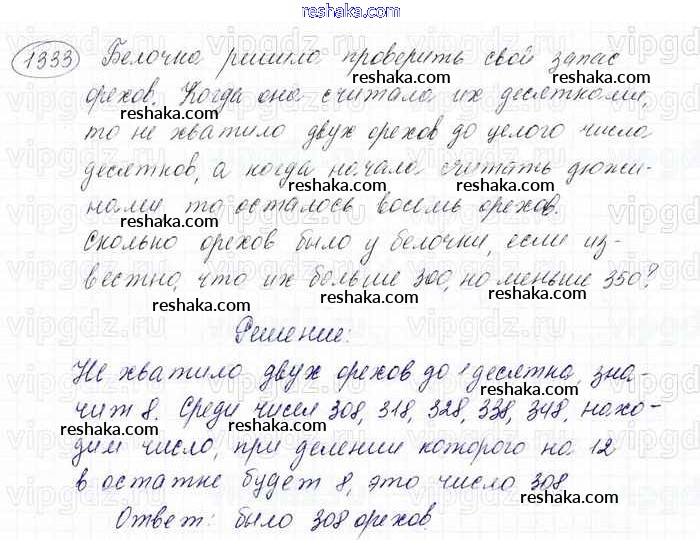 reshaka.com
1333 Белочка решила проверить свой запас
reshaka.com
орехов. Когда она считала их десятками,
reshaka.com
то не хватило двух орехов до целого числа
десятков, а когда начала считать дюжи-
reshaka.com reshaka.com
нами то осталось восемь орехов.
reshaka.com
Сколько орехов было у белочки, если из-
reshaka.com
вестно, что их больше 300, но меньше 350?
reshaka.com reshaka.com
Решение:
Не хватило двух орехов до 1 десятка, зна-
reshaka.com
чит 8. Среди чисел 308, 318, 328, 338, 348, нахо-
reshaka.com reshaka.com
дим число, при делении которого на 12
reshaka.com
в остатке будет 8, это число 308
reshaka.com reshaka.com
Ответ: было 308 орехов.
reshaka.com